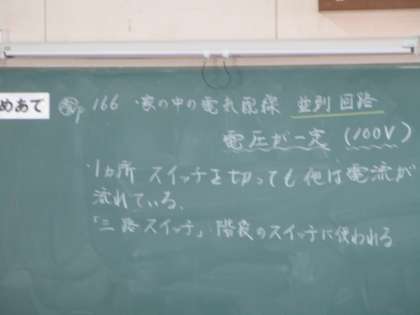 めあて
P166 ・家の中の電気配線 並列回路
電圧が一定 (100V)
・1ヵ所 スイッチを切っても他は電流が
流れている。
「三路スイッチ」 階段のスイッチに使われる